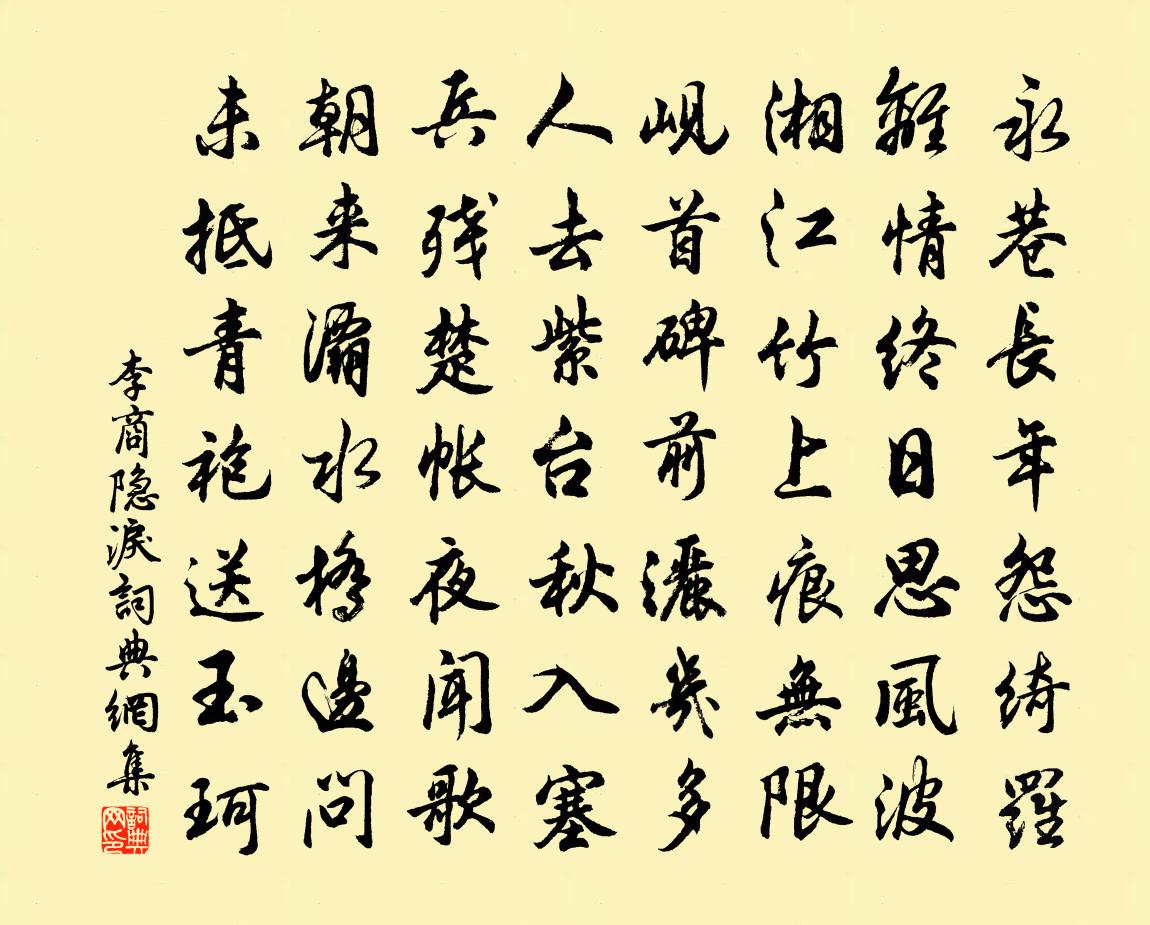 永巷長年怨綺羅
離情終日思風波
湘江竹上痕無限
峴首碑前灑幾多
人去紫台秋入塞
兵残楚帐夜闻歌
朝来灞水橋邊问
未抵青袍送玉珂
李商隐淚詞典網集
詞典网印